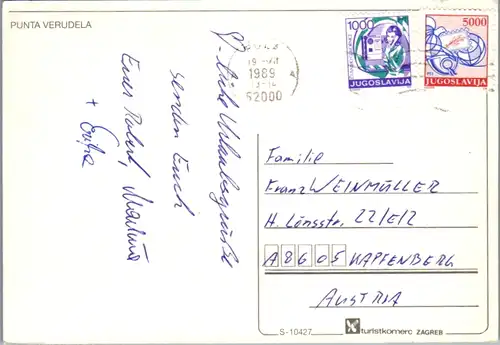 PUNTA VERUDELA
1000
JUGOSLAVIJA
5000
JUGOSLAVIJA
1989
52000
Liebe Urlaubsgrüße
senden Euch
Eure Robert, Martina
+
Familie
Franz WEINMÜLLER
H. Lönsstr. 22/E/2
A 8605 KAPFENBERG
AUSTRIA
S-10427
turistkomerc ZAGREB